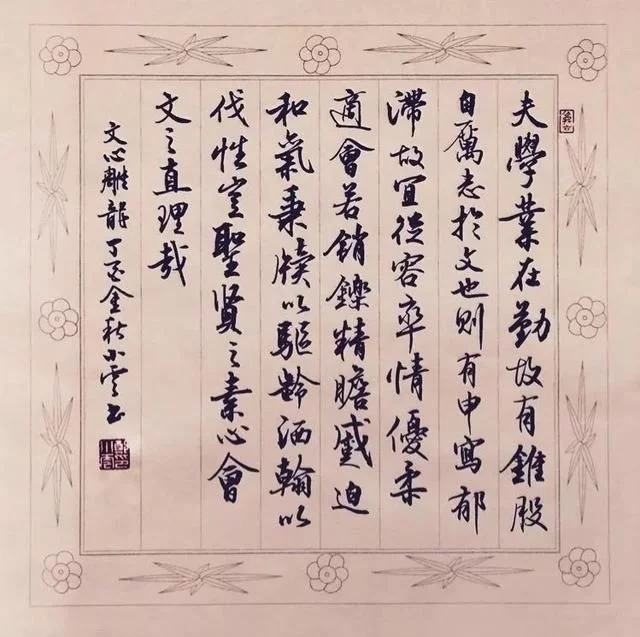 夫學業在勤故有錐股
自厲志於文也則有申寫郁
滯故宜從容率情優柔
適會若銷鑠精膽蹙迫
和氣秉牘以驅齡洒翰以
伐性豈聖賢之素心會
文之直理哉
文心雕龍丁酉金秋小雲書